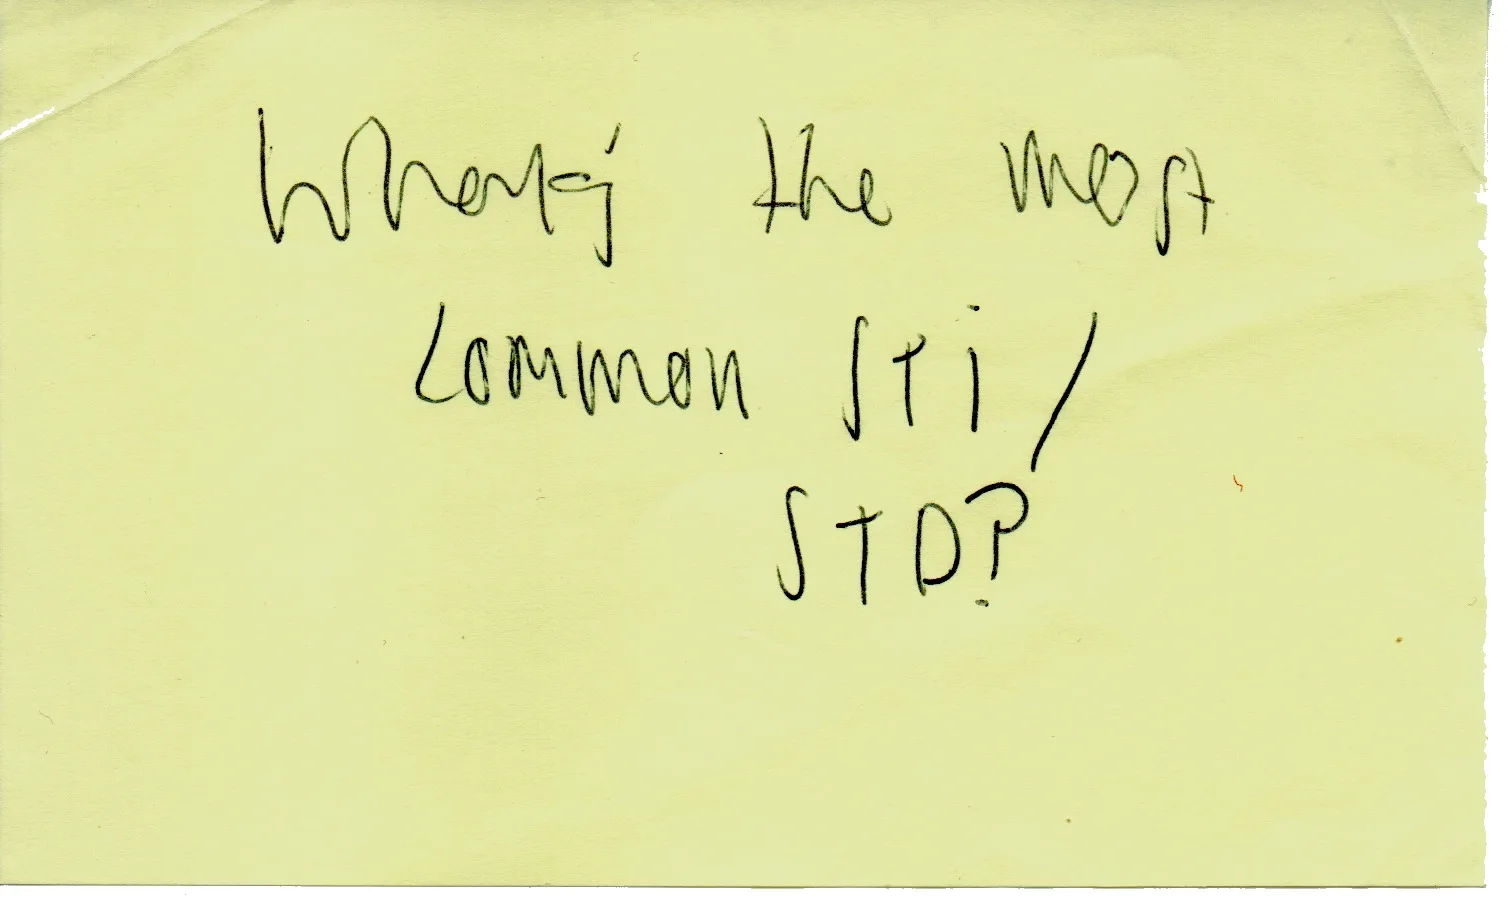 What's the most
common STi/
STD?